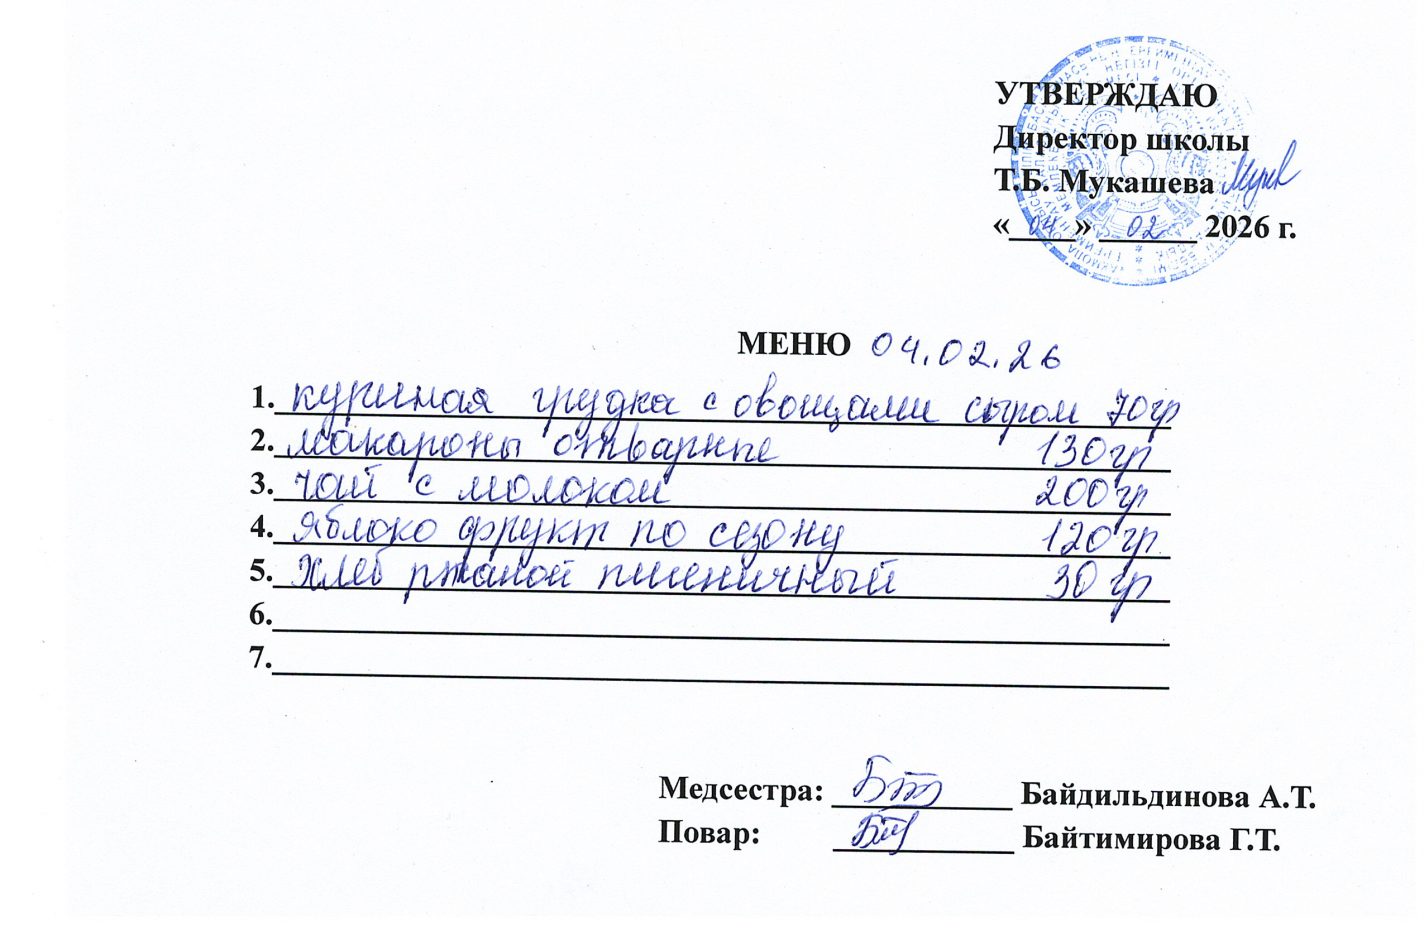 УТВЕРЖДАЮ
Директор школы
Т.Б. Мукашева
«04» 02 2026 г.
МЕНЮ 04.02.26
1. куриная грудка с овощами сыром 70гр
2. макароны отварные 130гр
3. чай с молоком 200гр
4. яблоко фрукт по сезону 120гр
5. хлеб ржаной пшеничный 30гр
6.
7.
Медсестра: Байдильдинова А.Т.
Повар: Байтимирова Г.Т.